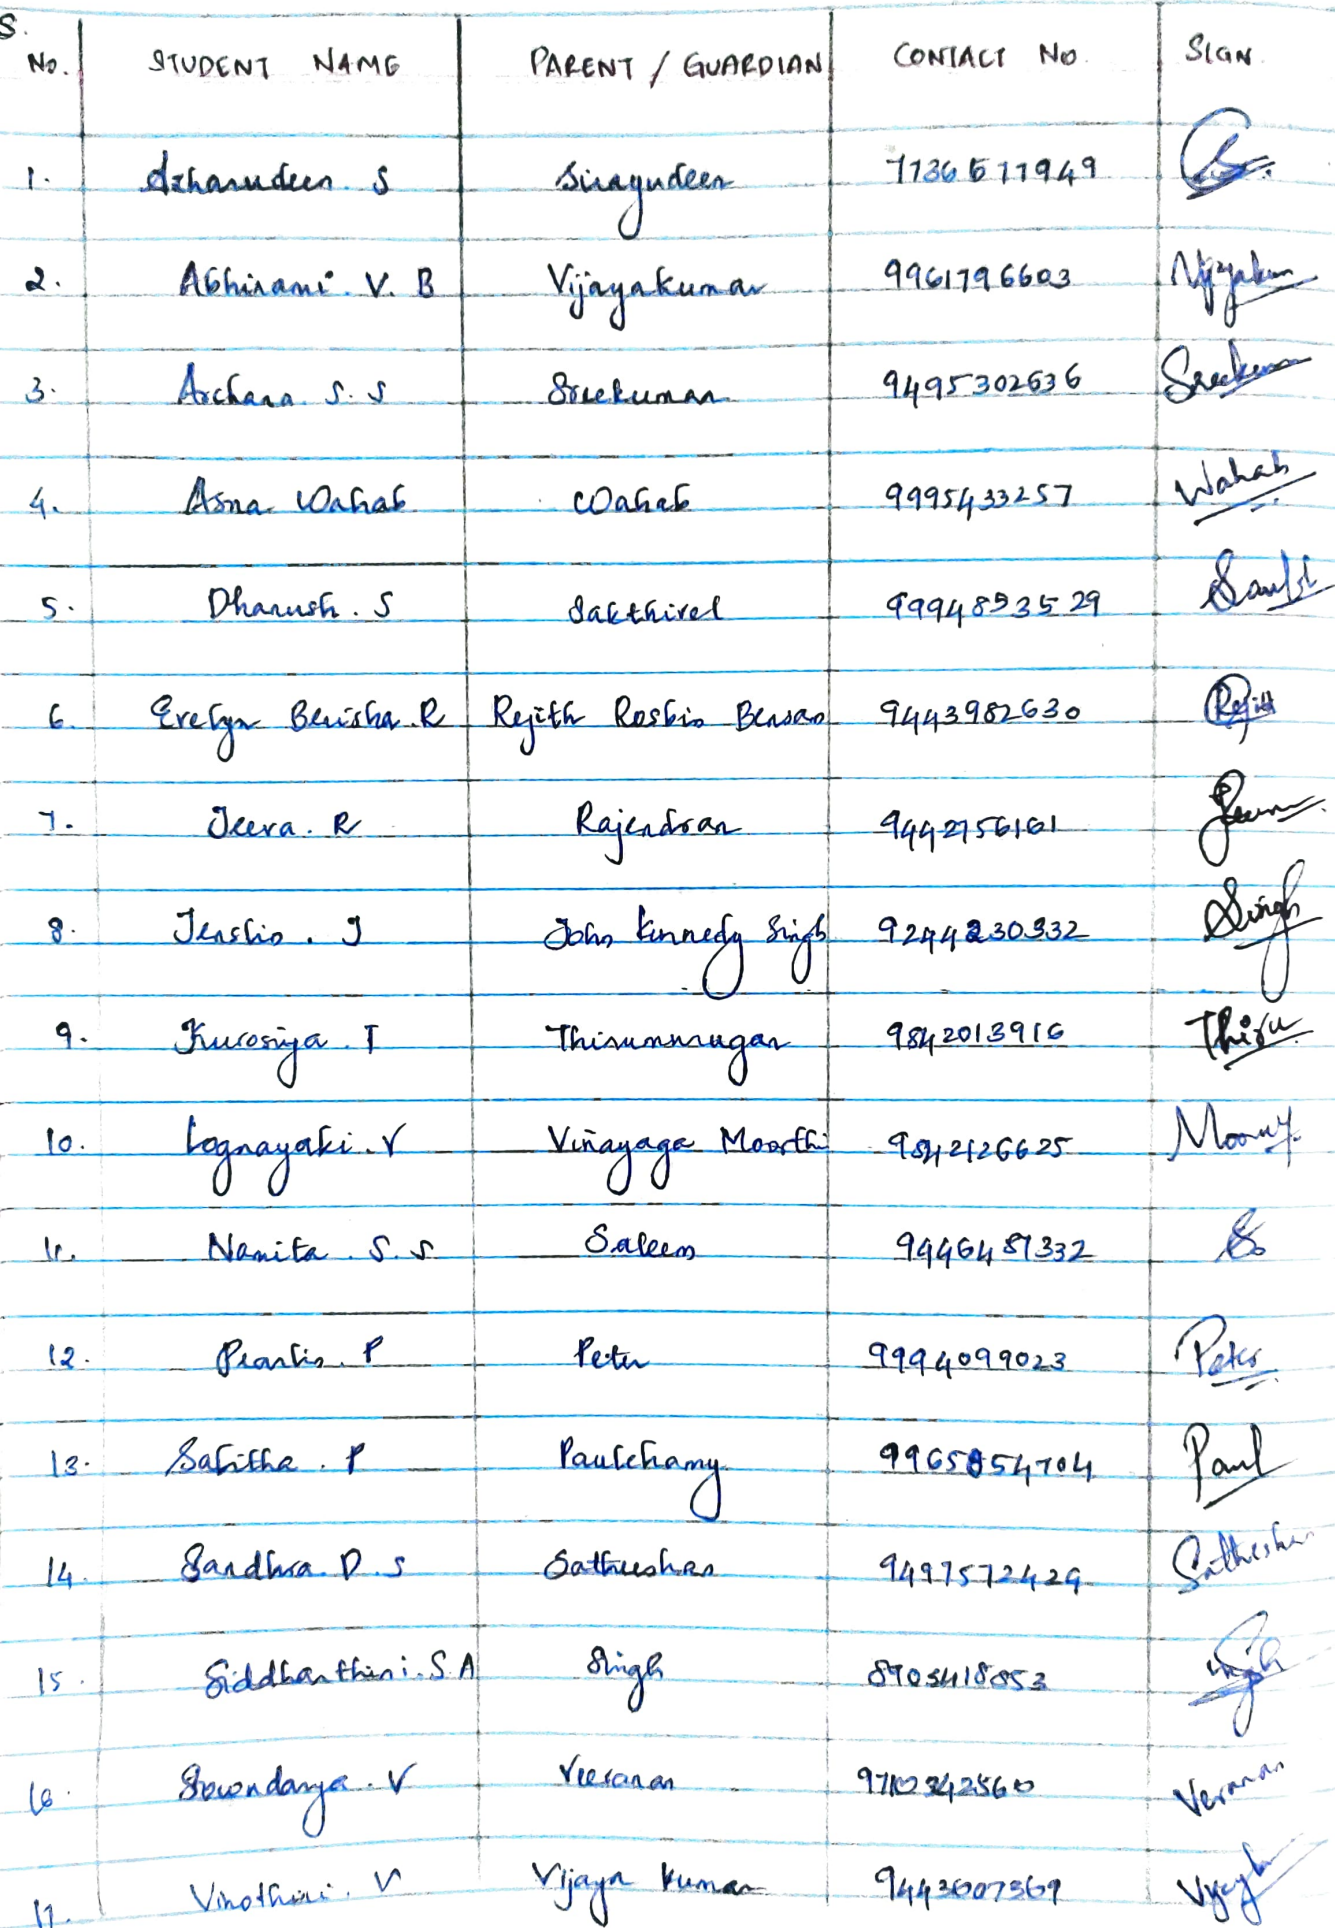 S.
No. STUDENT NAME PARENT / GUARDIAN CONTACT No. SIGN
1. Azharudeen. S Sirayudeen 7736577949
2. Abhirami. V. B Vijayakumar 9961796603 Vijayakum
3. Archana. S. S Sreekumar 9495302636 Sreekumar
4. Asna Wahab Wahab 9995433257 Wahab
5. Dhanush. S Sakthivel 9994893529
6. Evelyn Berisha. R Rejith Rosbin Bensan 9443982630 Rejith
7. Jeeva. R Rajendran 9442756161
8. Jensbin. J John Kennedy Singh 9244230332 Singh
9. Kurosiya. T Thirumurugan 9842013916 Thiru
10. Lognayaki. V Vinayaga Moorthi 9842126625
11. Namita. S. S Saleem 9446481332
12. Pearlin. P Peter 9994099023 Peter
13. Sabitha. P Paulchamy 9965854704 Paul
14. Sandhra. D. S Satheeshan 9497572429 Satheeshan
15. Siddhanthini. S. A Singh 8903418853 Singh
16. Sowndarya. V Veeranan 9710342560 Veranan
17. Vinothini. V Vijaya kumar 9443607369